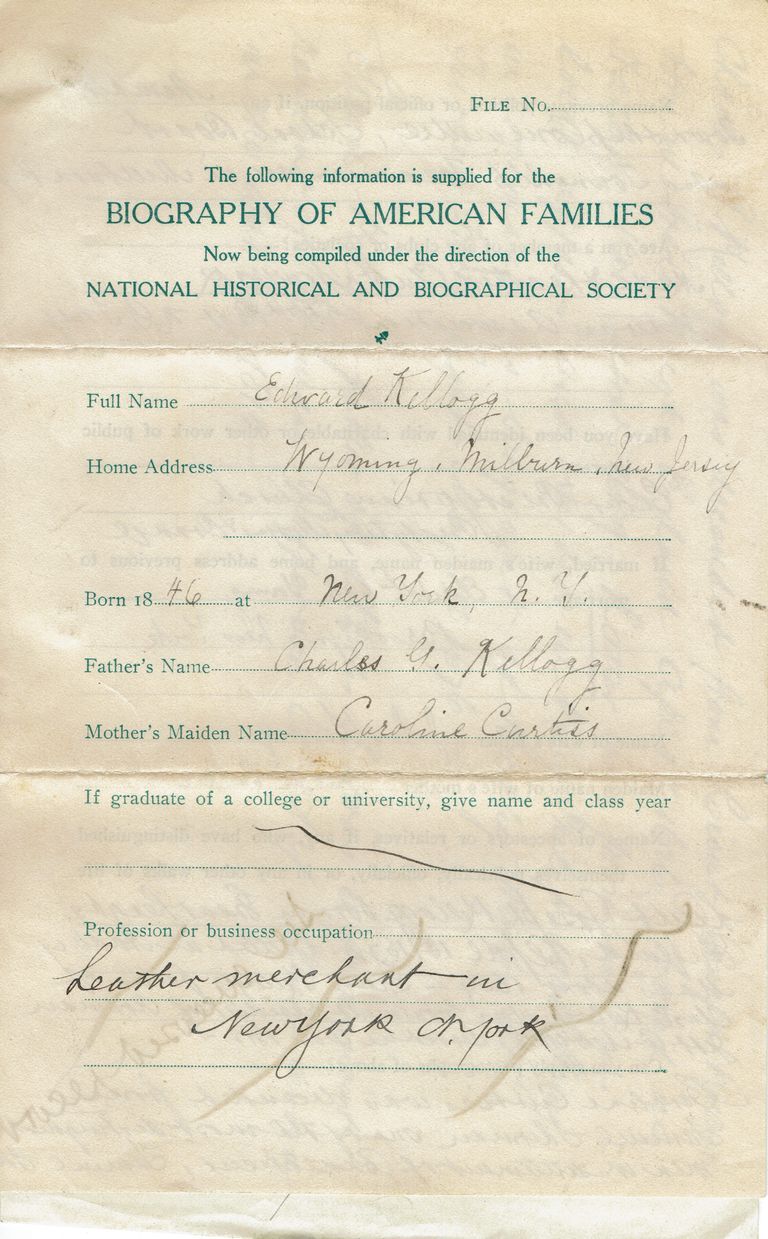 File No.
The following information is supplied for the
BIOGRAPHY OF AMERICAN FAMILIES
Now being compiled under the direction of the
NATIONAL HISTORICAL AND BIOGRAPHICAL SOCIETY
Full Name Edward Kellogg
Home Address Wyoming, Milburn, New Jersey
Born 1846 at New York, N. Y.
Father's Name Charles G. Kellogg
Mother's Maiden Name Caroline Curtiss
If graduate of a college or university, give name and class year
Profession or business occupation
Leather merchant in
New York N. York